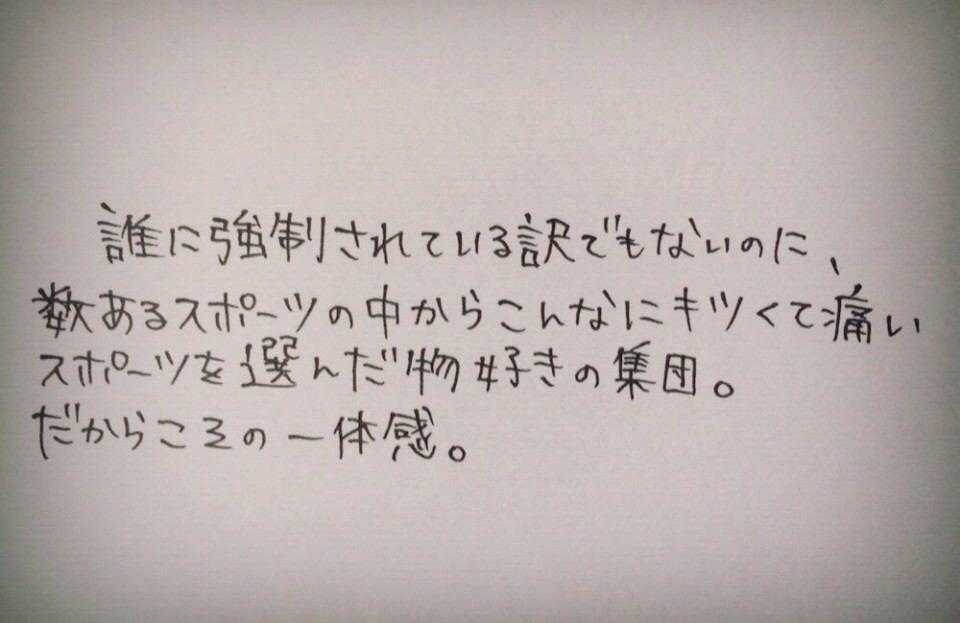 誰に強制されている訳でもないのに、
数あるスポーツの中からこんなにキツくて痛い
スポーツを選んだ物好きの集団。
だからこその一体感。